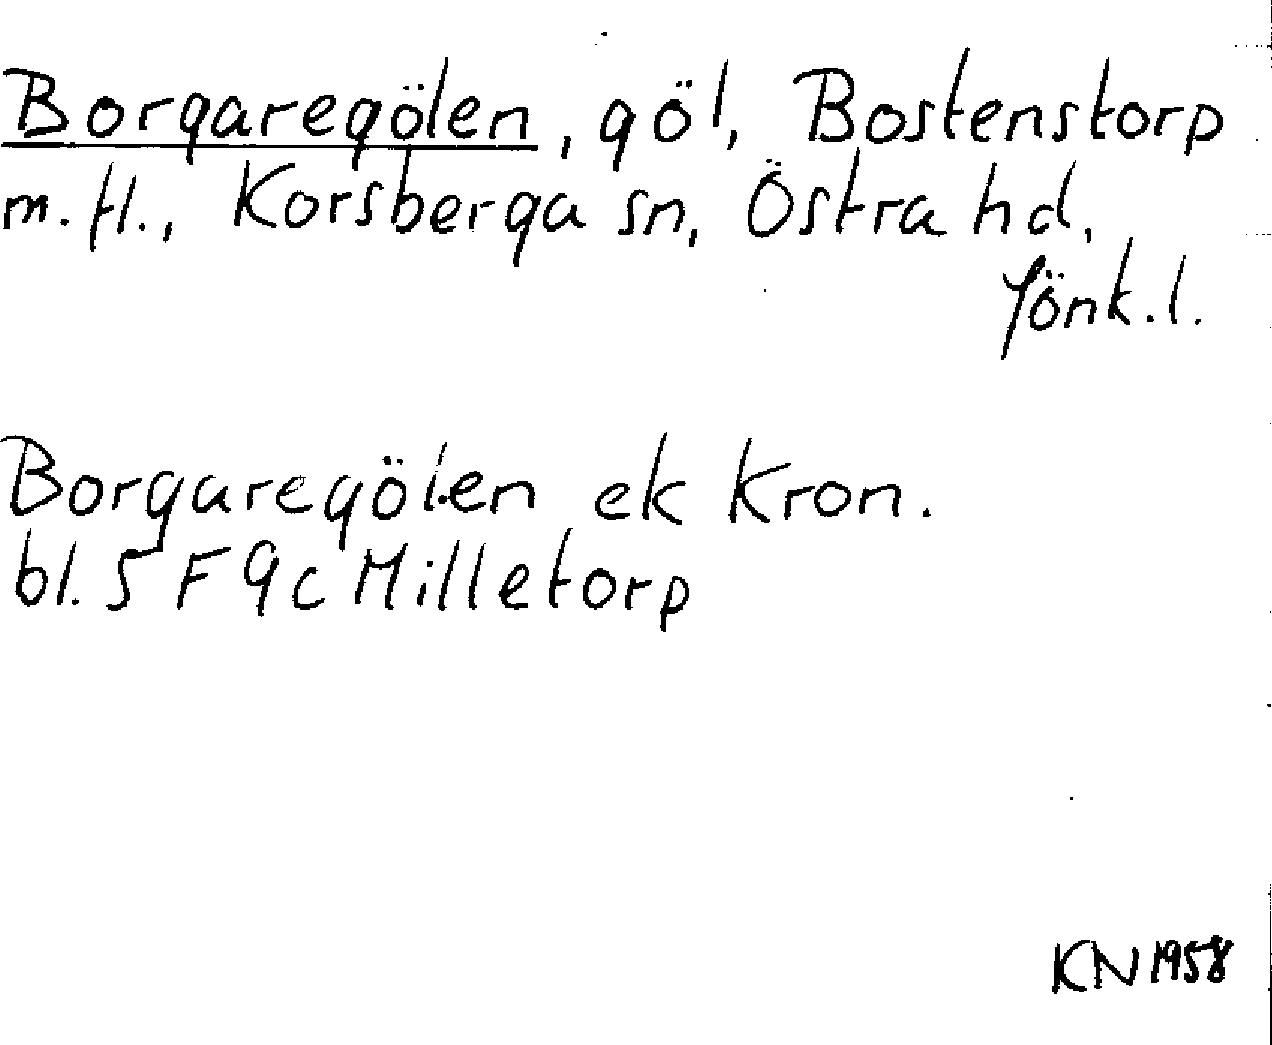 Borgaregölen, göl, Bostenstorp
m.fl., Korsberga sn, Östra hd,
Jönk.l.
Borgaregölen ek kron.
bl. 5 F 9c Milletorp
KN 1958